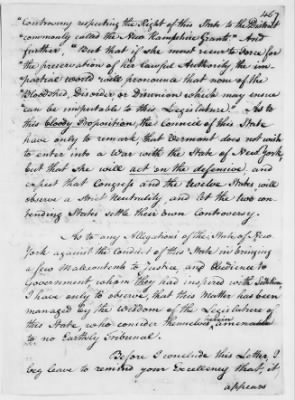 467
"Controversy respecting the Right of this State to the District
commonly called the New Hampshire Grants" And
further, "But that if she must recur to Force for
the preservation of her Lawful Authority, the im-
partial world will pronounce that none of the
Bloodshed, Disorder or Disunion which may ensue
can be imputable to this Legislature." As to
this bloody Proposition, the Council of this State
have only to remark, that Vermont does not wish
to enter into a War with the State of New York,
but that she will act on the defensive, and
expect that Congress and the twelve States will
observe a strict Neutrality, and let the two con-
tending States settle their own Controversy.
As to any Allegations of the State of New
York against the Conduct of this State in bringing
a few Malecontents to Justice, and Obedience to
Government, whom they had inspired with Sedition,
I have only to observe, that this Matter has been
managed by the Wisdom of the Legislature of
this State, who consider themselves herein amenable
to no Earthly Tribunal.
Before I conclude this Letter, I
beg leave to remind your Excellency that, it
appears